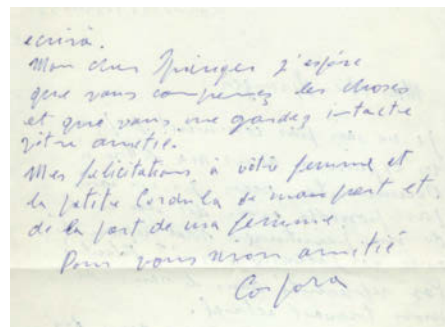 ecrirà.
Mon cher Springer j'espère
que vous comprenez les choses
et que vous me gardez intacte
vôtre amitié.
Mes felicitations à vôtre femme et
la petite Cordula de mon part et
de la part de ma femme.
Pour vous mon amitié
Corpora